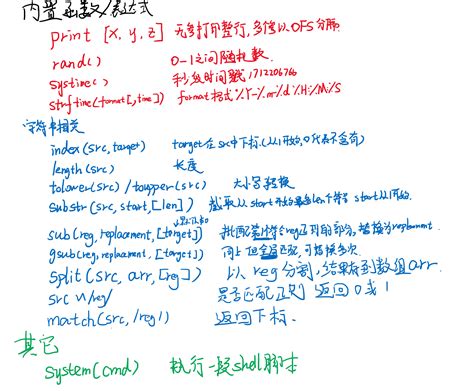 内置函数/表达式
print [x, y, z] 无参打印整行,多参以OFS分隔
rand() 0-1之间随机数
systime() 秒级时间戳 1712206766
strftime(format[,time]) format格式 %Y-%m-%d %H:%M:%S
字符串相关
index(src, target) target在src中下标(从1开始,0代表不含有)
length(src) 长度
tolower(src)/toupper(src) 大小写转换
substr(src, start,[len]) 截取从start开始最多len个字符 start从1开始.
默认为$0
sub(reg, replacement,[target]) 把匹配第1个符合reg正则的部分,替换为replacement
gsub(reg, replacement, [target]) 同上 但全局匹配,可替换多次.
split(src, arr,[reg]) 以reg分割,结果存到数组arr
src ~/reg/ 是否匹配正则 返回0或1
match(src, /reg/) 返回下标.
其它
system(cmd) 执行一段shell脚本